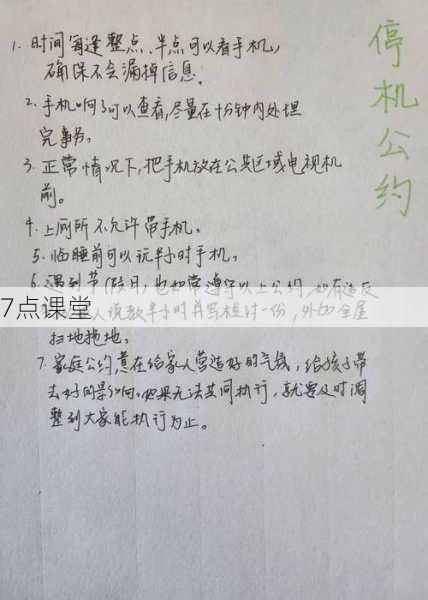 停机公约
1. 时间每逢整点、半点可以看手机,
确保不会漏掉信息。
2. 手机响了可以查看,尽量在十分钟内处理
完事务。
3. 正常情况下,把手机放在公共区域电视机
前。
4. 上厕所不允许带手机。
5. 临睡前可以玩半小时手机。
6. 遇到节假日,也如常遵守以上公约,如有违反
人说教半小时并写检讨一份,外加全屋
扫地拖地。
7. 家庭公约意在给家人营造好的气氛,给孩子带
去好的影响。如果无法共同执行,就要及时调
整到大家能执行为止。
7点课堂